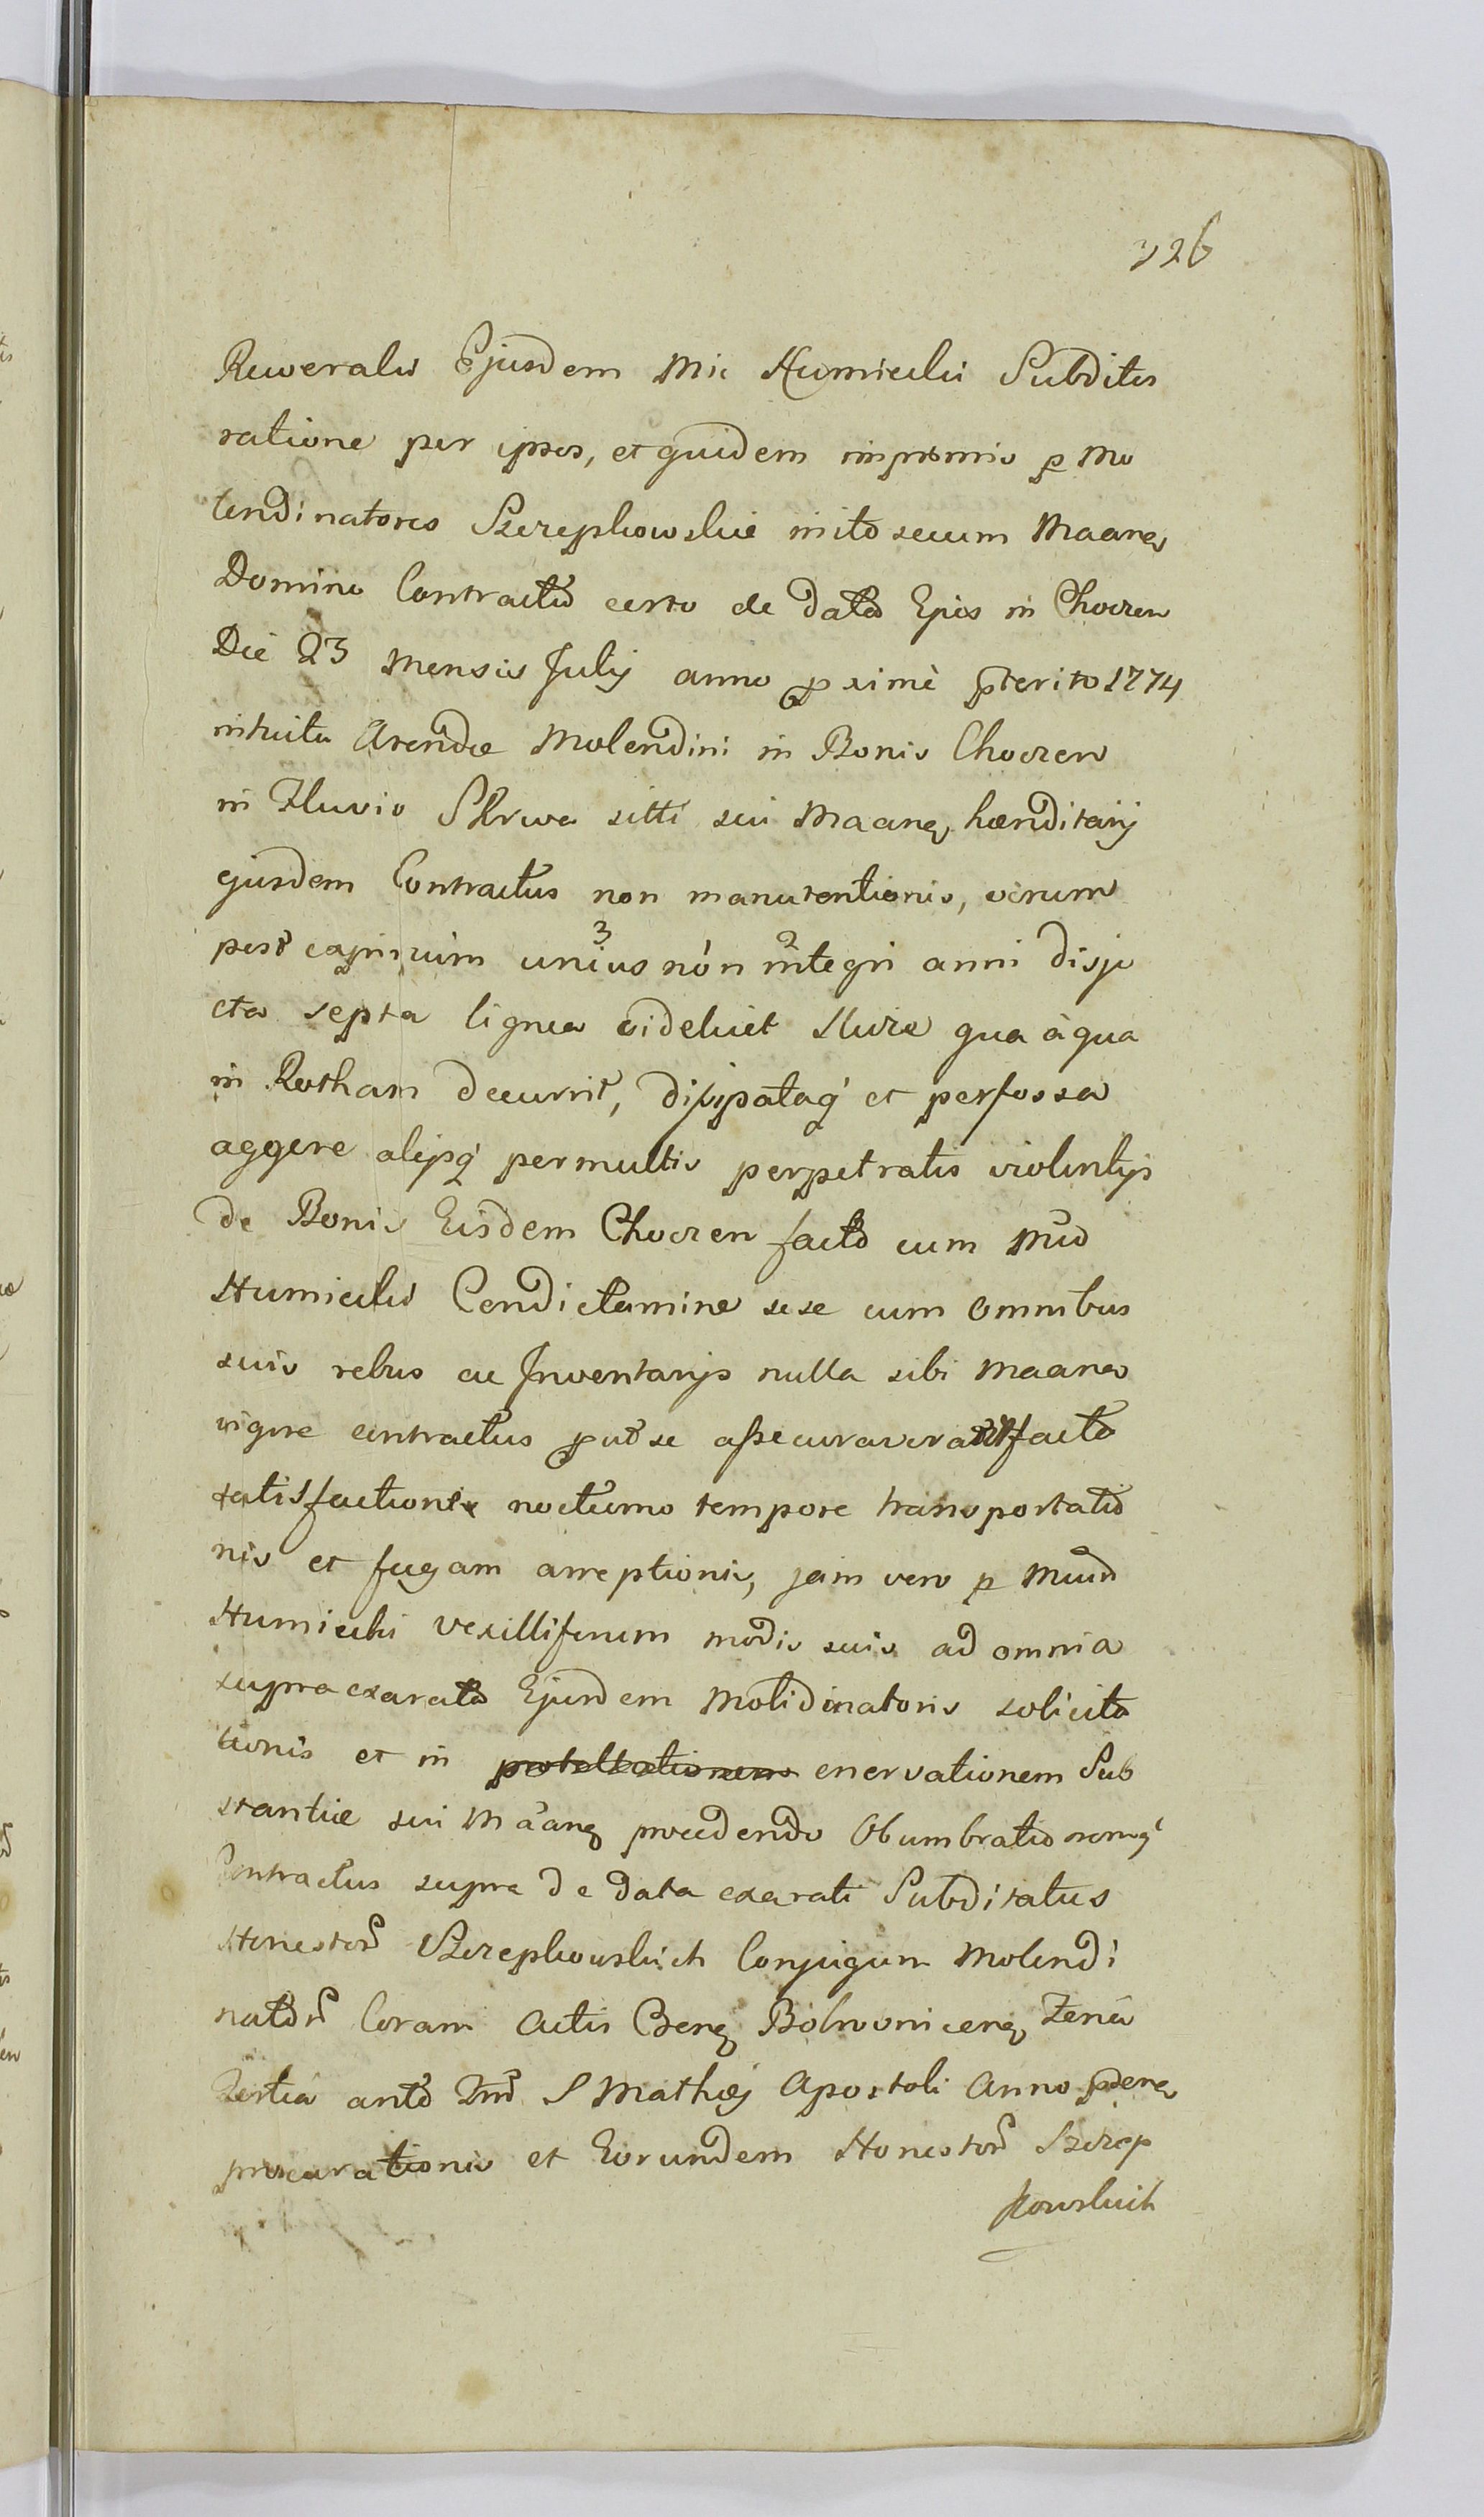 326
Ruweralis Ejusdem Mic Humiecki Subditos
ratione per ipsos, et quidem imprimis p Mo
lendinatores Szerepkowskie inito secum Maaneq
Domino Contractu certo de data Ejus in Choczen
Die 23 Mensis Julij anno proxime pterito 1774
intuitu Arendæ Molendini in Bonis Choczen
in Fluvio Skrwa sitti sui Maaneq hæreditarij
ejusdem Contractus non manutentionis, verum
post expirium unius non integri anni disje
cta septa lignea videlicet sluze qua aqua
in Rotham decurrit, dissipataq et perfossa
aggere alijsq permultis perpetratis violentijs
de Bonis Eisdem Choczen facto cum Mco
Humiecki Condictamine sese cum omnibus
suis rebus ac Inventarijs nulla sibi Maanea
vigore contractus put se assecuraverat facta
satisfactione nocturno tempore transportatio
nis et fugam arreptionis, jam vero p Mcum
Humiecki vexilliferum modis suis ad omnia
supra exarata Ejusdem Molidinatoris solicita
tionis et in protestationem enervationem Sub
stantiæ sui Maaneq procedendo Obumbrationemq
Contractus supra de data exarati Subditatus
Honestor Szerepkowskich Conjugum Molendi
nator Coram Actis Cbeneq Bobrovniceneq Feria
Tertia ante Fm S Mathæj Apostoli Anno pdeneq
procurationis et Eorundem Honestor Szerep
kowskich